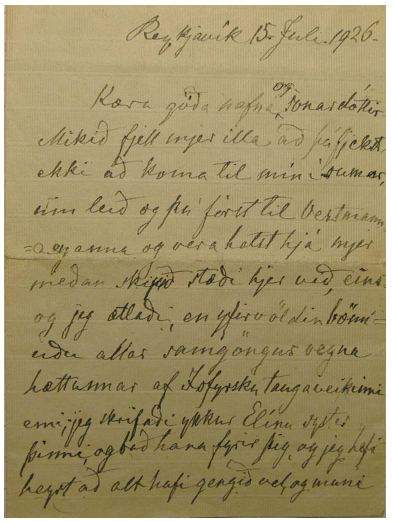 Reykjavík 15. Júlí. 1926.
Kæra góða nafna og sonardóttir
Mikið fjell mjer illa að þú fjekst
ekki að koma til mín í sumar,
um leið og þú fórst til Vestmann-
=a eyjanna og vera helst hjá mjer
meðan skipið stæði hjer við, eins
og jeg ætlaði, en yfirvöldin bönn-
uðu allar samgöngur vegna
hættunnar af Ísfyrsku taugaveikinni
en jeg skrifaði ykkur Elínu systir
þinni, og bað hana fyrir þig, og jeg hefi
heyrt að alt hafi gengið vel, og muni